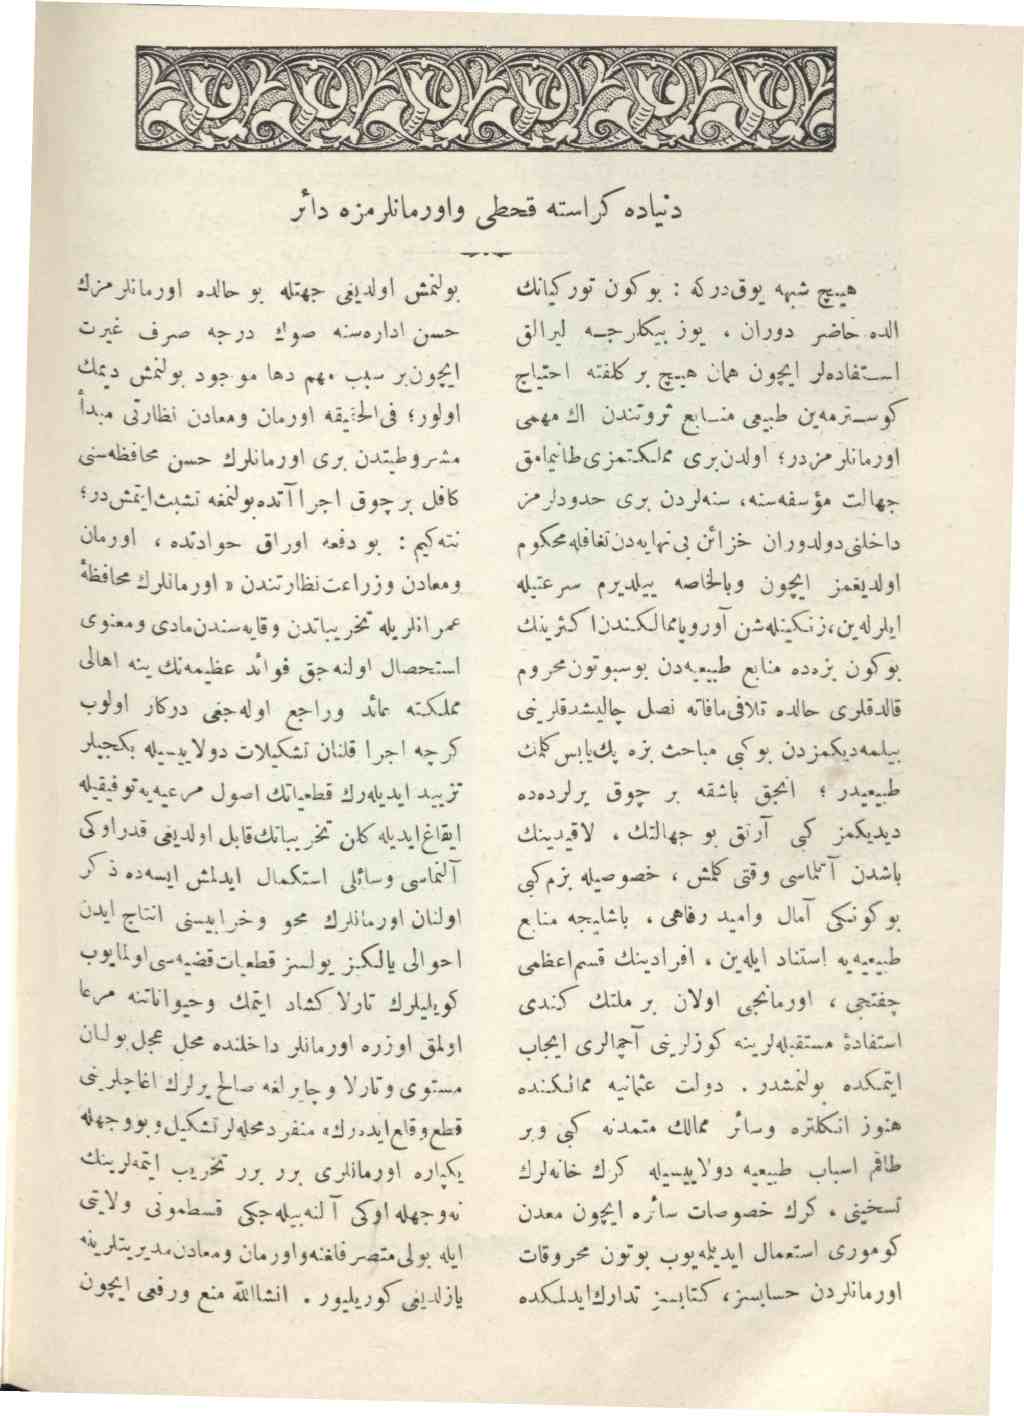 دنیاده كراسته قحطی واورمانلرمزه دائر
هیچ شبهه یوقدركه : بوكون توركیانك
الده حاضر دوران ، یوز بیكلرجه لیرالق
استفاده‌لر ایچون همان هیچ بر كلفته احتیاج
كوسترمه‌ین طبیعی منابع ثروتندن اك مهمی
اورمانلرمزدر؛ اولدن‌بری مملكتمزی طانیمامق
جهالت مؤسفه‌سنه، سنه‌لردن بری حدودلرمز
داخلنی دولدوران خزائن بی‌نهایه‌دن تغافله محكوم
اولدیغمز ایچون وبالخاصه ییلدیرم سرعتیله
ایلرله‌ین، زنكینله‌شن آوروپا ممالكندن اكثرینك
بوكون بزده‌ده منابع طبیعیه‌دن بوسبوتون محروم
قالدقلری حالده تلافی‌مافاته نصل چالیشدقلرینی
بیلمه‌دیكمزدن بوكبی مباحث بزه پك‌یابس كلمك
طبیعیدر ؛ انجق باشقه بر چوق یرلرده‌ده
دیدیكمز كبی آرتق بو جهالتك ، لاقیدینك
باشدن آتلماسی وقتی كلمش ، خصوصیله بزم كبی
بوكونكی آمال وامید رفاهی ، باشلیجه منابع
طبیعیه‌یه استناد ایله‌ین ، افرادینك قسم‌اعظمی
چفتجی ، اورمانجی اولان بر ملتك كندی
استفادۀ مستقبله‌لرینه كوزلرینی آچمالری ایجاب
ایتمكده بولنمشدر . دولت عثمانیه ممالكنده
هنوز انكلتره وسائر ممالك متمدنه كبی وبر
طاقم اسباب طبیعیه دولاییسیله كرك خانه‌لرك
تسخینی ، كرك خصوصات سائره ایچون معدن
كوموری استعمال ایدیله‌یوب بوتون محروقات
اورمانلردن حسابسز، كتابسز تدارك‌ایدلمكده
بولنمش اولدیغی جهتله بو حالده اورمانلرمزك
حسن اداره‌سنه صوك درجه صرف غیرت
ایچون‌بر سبب مهم دها موجود بولنمش دیمك
اولور؛ فی‌الحقیقه اورمان ومعادن نظارتی مبدأ
مشروطیتدن بری اورمانلرك حسن محافظه‌سنی
كافل بر چوق اجراآتده‌بولنمغه تشبث‌ایتمش‌در؛
نته‌كیم : بو دفعه اوراق حوادثده ، اورمان
ومعادن وزراعت‌نظارتندن « اورمانلرك محافظۀ
عمرانلریله تخریباتدن وقایه‌سندن‌مادی ومعنوی
استحصال اولنه‌جق فوائد عظیمه‌نك ینه اهالی
مملكته عائد وراجع اوله‌جغی دركار اولوب
كرچه اجرا قلنان تشكیلات دولاییسیله بكجیلر
تزیید ایدیله‌رك قطعیاتك اصول مرعیه‌یه‌توفیقیله
ایقاع‌ایدیله‌كلن تخریباتك‌قابل اولدیغی قدراوكی
آلنماسی وسائلی استكمال ایدلمش ایسه‌ده ذكر
اولنان اورمانلرك محو وخرابیسنی انتاج ایدن
احوالی یالكز یولسز قطعیات‌قضیه‌سی‌اولمایوب
كویلیلرك تارلا كشاد ایتمك وحیواناتنه مرعا
اولمق اوزره اورمانلر داخلنده محل عجل بولنان
مستوی وتارلا وچایرلغه صالح یرلرك اغاجلرینی
قطع‌وقلع‌ایده‌رك، منفرد محله‌لرتشكیل وبووجهله
یكپاره اورمانلری برر برر تخریب ایتمه‌لرینك
نه‌وجهله‌اوكی آلنه‌بیله‌جكی قسطمونی ولایتی
ایله بولی‌متصرفلغنه‌واورمان ومعادن‌مدیریتلرینه
یازلدیغی كوریلیور . انشاالله منع ورفعی ایچون